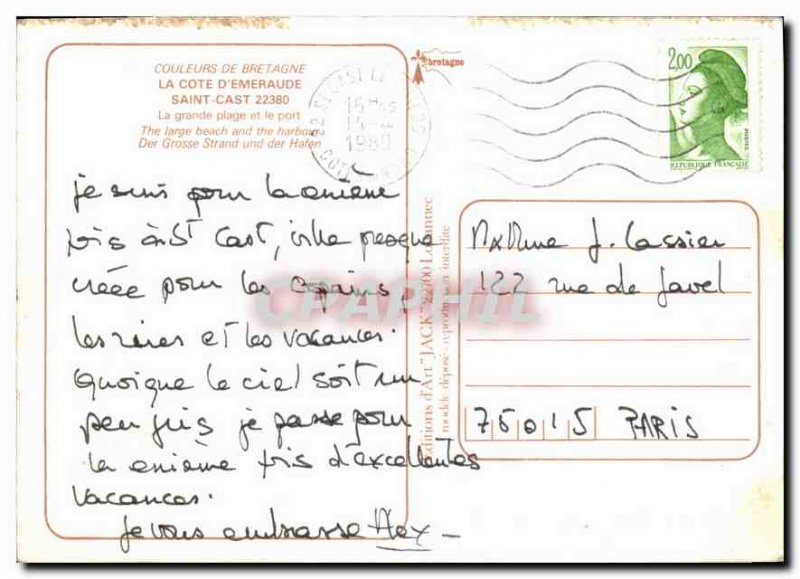 COULEURS DE BRETAGNE
LA COTE D'EMERAUDE
SAINT-CAST 22380
La grande plage et le port
The large beach and the harbour
Der Grosse Strand und der Hafen
bretagne
22 ST CAST LE
15H
1980
2,00
POSTES
REPUBLIQUE FRANÇAISE
je suis pour la enième
fois à St Cast, ville presque
créée pour les copains,
les rires et les vacances.
Quoique le ciel soit un
peu gris je passe pour
la enième fois d'excellentes
vacances.
je vous embrasse Alex
Editions d'Art "JACK" 22700 Louannec
modèle déposé - reproduction interdite
CPAPHIL
J. Cassier
122 rue de Javel
75015 PARIS